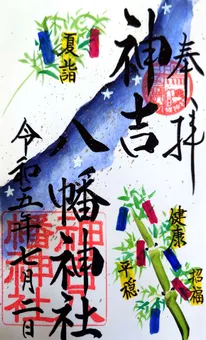 奉拝
神吉
八幡神社
令和五年七月二日
夏詣
健康
招福
平穏
神吉八幡神社